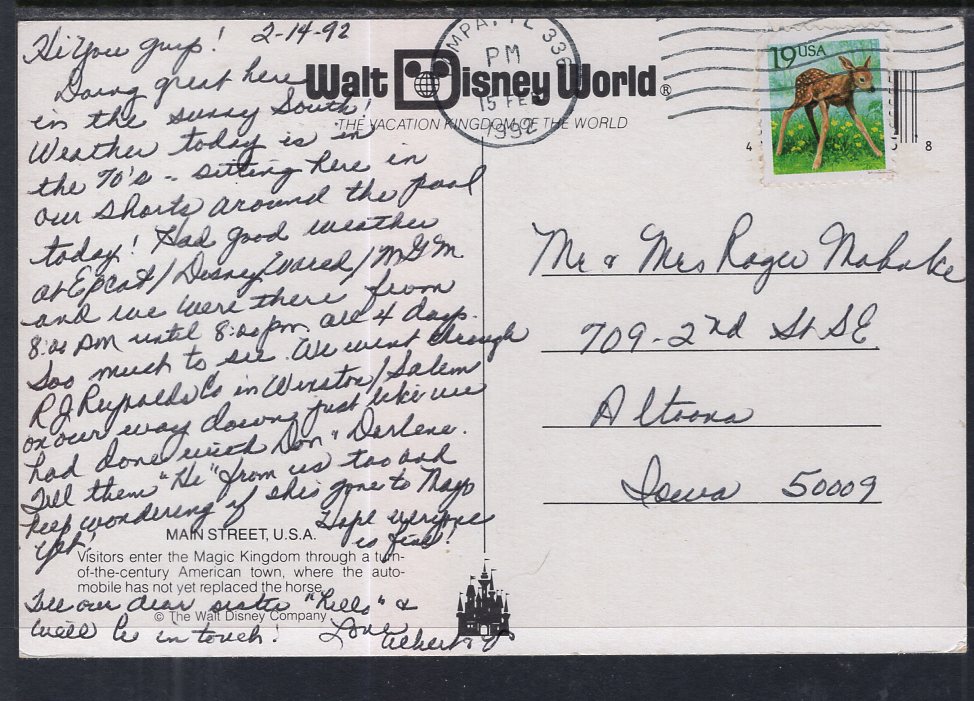 Hi You guys! 2-14-92
Doing great here
in the sunny South!
Weather today is in
the 70's - sitting here in
our shorts around the pool
today! Had good weather
at Epcot/Disney World/MGM
and we were there from
8:00 AM until 8:00 pm all 4 days.
Soo much to see. We went through
R J Reynolds Co in Winston/Salem
on our way down just like we
had done with Don & Darlene.
Tell them "Hi" from us too and
keep wondering if she's gone to Mayo
yet! Hope everyone
is fine!
Tell our dear sister "Hello" &
we'll be in touch! Love
Albert &
Walt Disney World®
THE VACATION KINGDOM OF THE WORLD
MAIN STREET, U.S.A.
Visitors enter the Magic Kingdom through a turn-
of-the-century American town, where the auto-
mobile has not yet replaced the horse.
© The Walt Disney Company
MPA, FL 336
PM
15 FE
1992
19 USA
4
8
Mr & Mrs Roger Mahnke
709-2nd St SE
Altoona
Iowa 50009